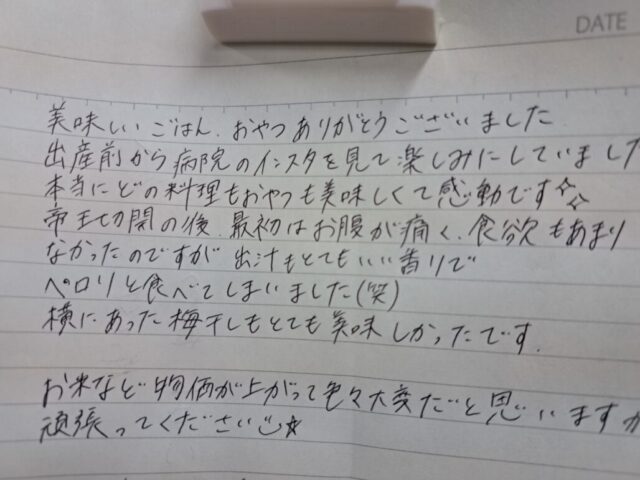 DATE
美味しいごはん、おやつありがとうございました
出産前から病院のインスタを見て楽しみにしていました
本当にどの料理もおやつも美味しくて感動です✧✧
帝王切開の後、最初はお腹が痛く、食欲もあまり
なかったのですが出汁もとてもいい香りで
ペロリと食べてしまいました(笑)
横にあった梅干しもとても美味しかったです.
お米など物価が上がって色々大変だと思いますが
頑張ってください☆